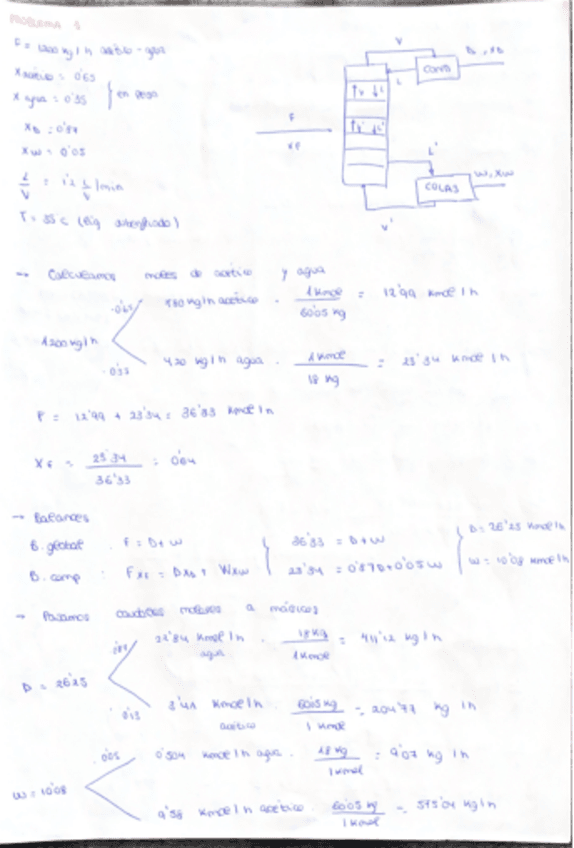 PROBLEMA 5
F = 1200 kg/h acético-agua
X acético = 0'65
X agua = 0'35 } en peso
XD = 0'87
XW = 0'05
T = 35 C
V
D, XD
COND
L
F
XF
L'
W, XW
COLAS
V'
→ Calculamos moles de acético y agua
1200 kg/h
0'65 780 kg/h acético · 1 kmol / 60'05 kg = 12'99 kmol/h
0'35 420 kg/h agua · 1 kmol / 18 kg = 23'34 kmol/h
F = 12'99 + 23'34 = 36'33 kmol/h
XF = 23'34 / 36'33 = 0'64
→ Balances
B. global : F = D + W { 36'33 = D + W { D = 26'25 kmol/h
B. comp : F XF = D XD + W XW { 23'34 = 0'87D + 0'05W { W = 10'08 kmol/h
→ Pasamos caudales molares a másicos
D = 26'25
0'87 22'84 kmol/h agua · 18 kg / 1 kmol = 411'12 kg/h
0'13 3'41 kmol/h acético · 60'05 kg / 1 kmol = 204'77 kg/h
W = 10'08
0'05 0'504 kmol/h agua · 18 kg / 1 kmol = 9'07 kg/h
9'58 kmol/h acético · 60'05 kg / 1 kmol = 575'04 kg/h